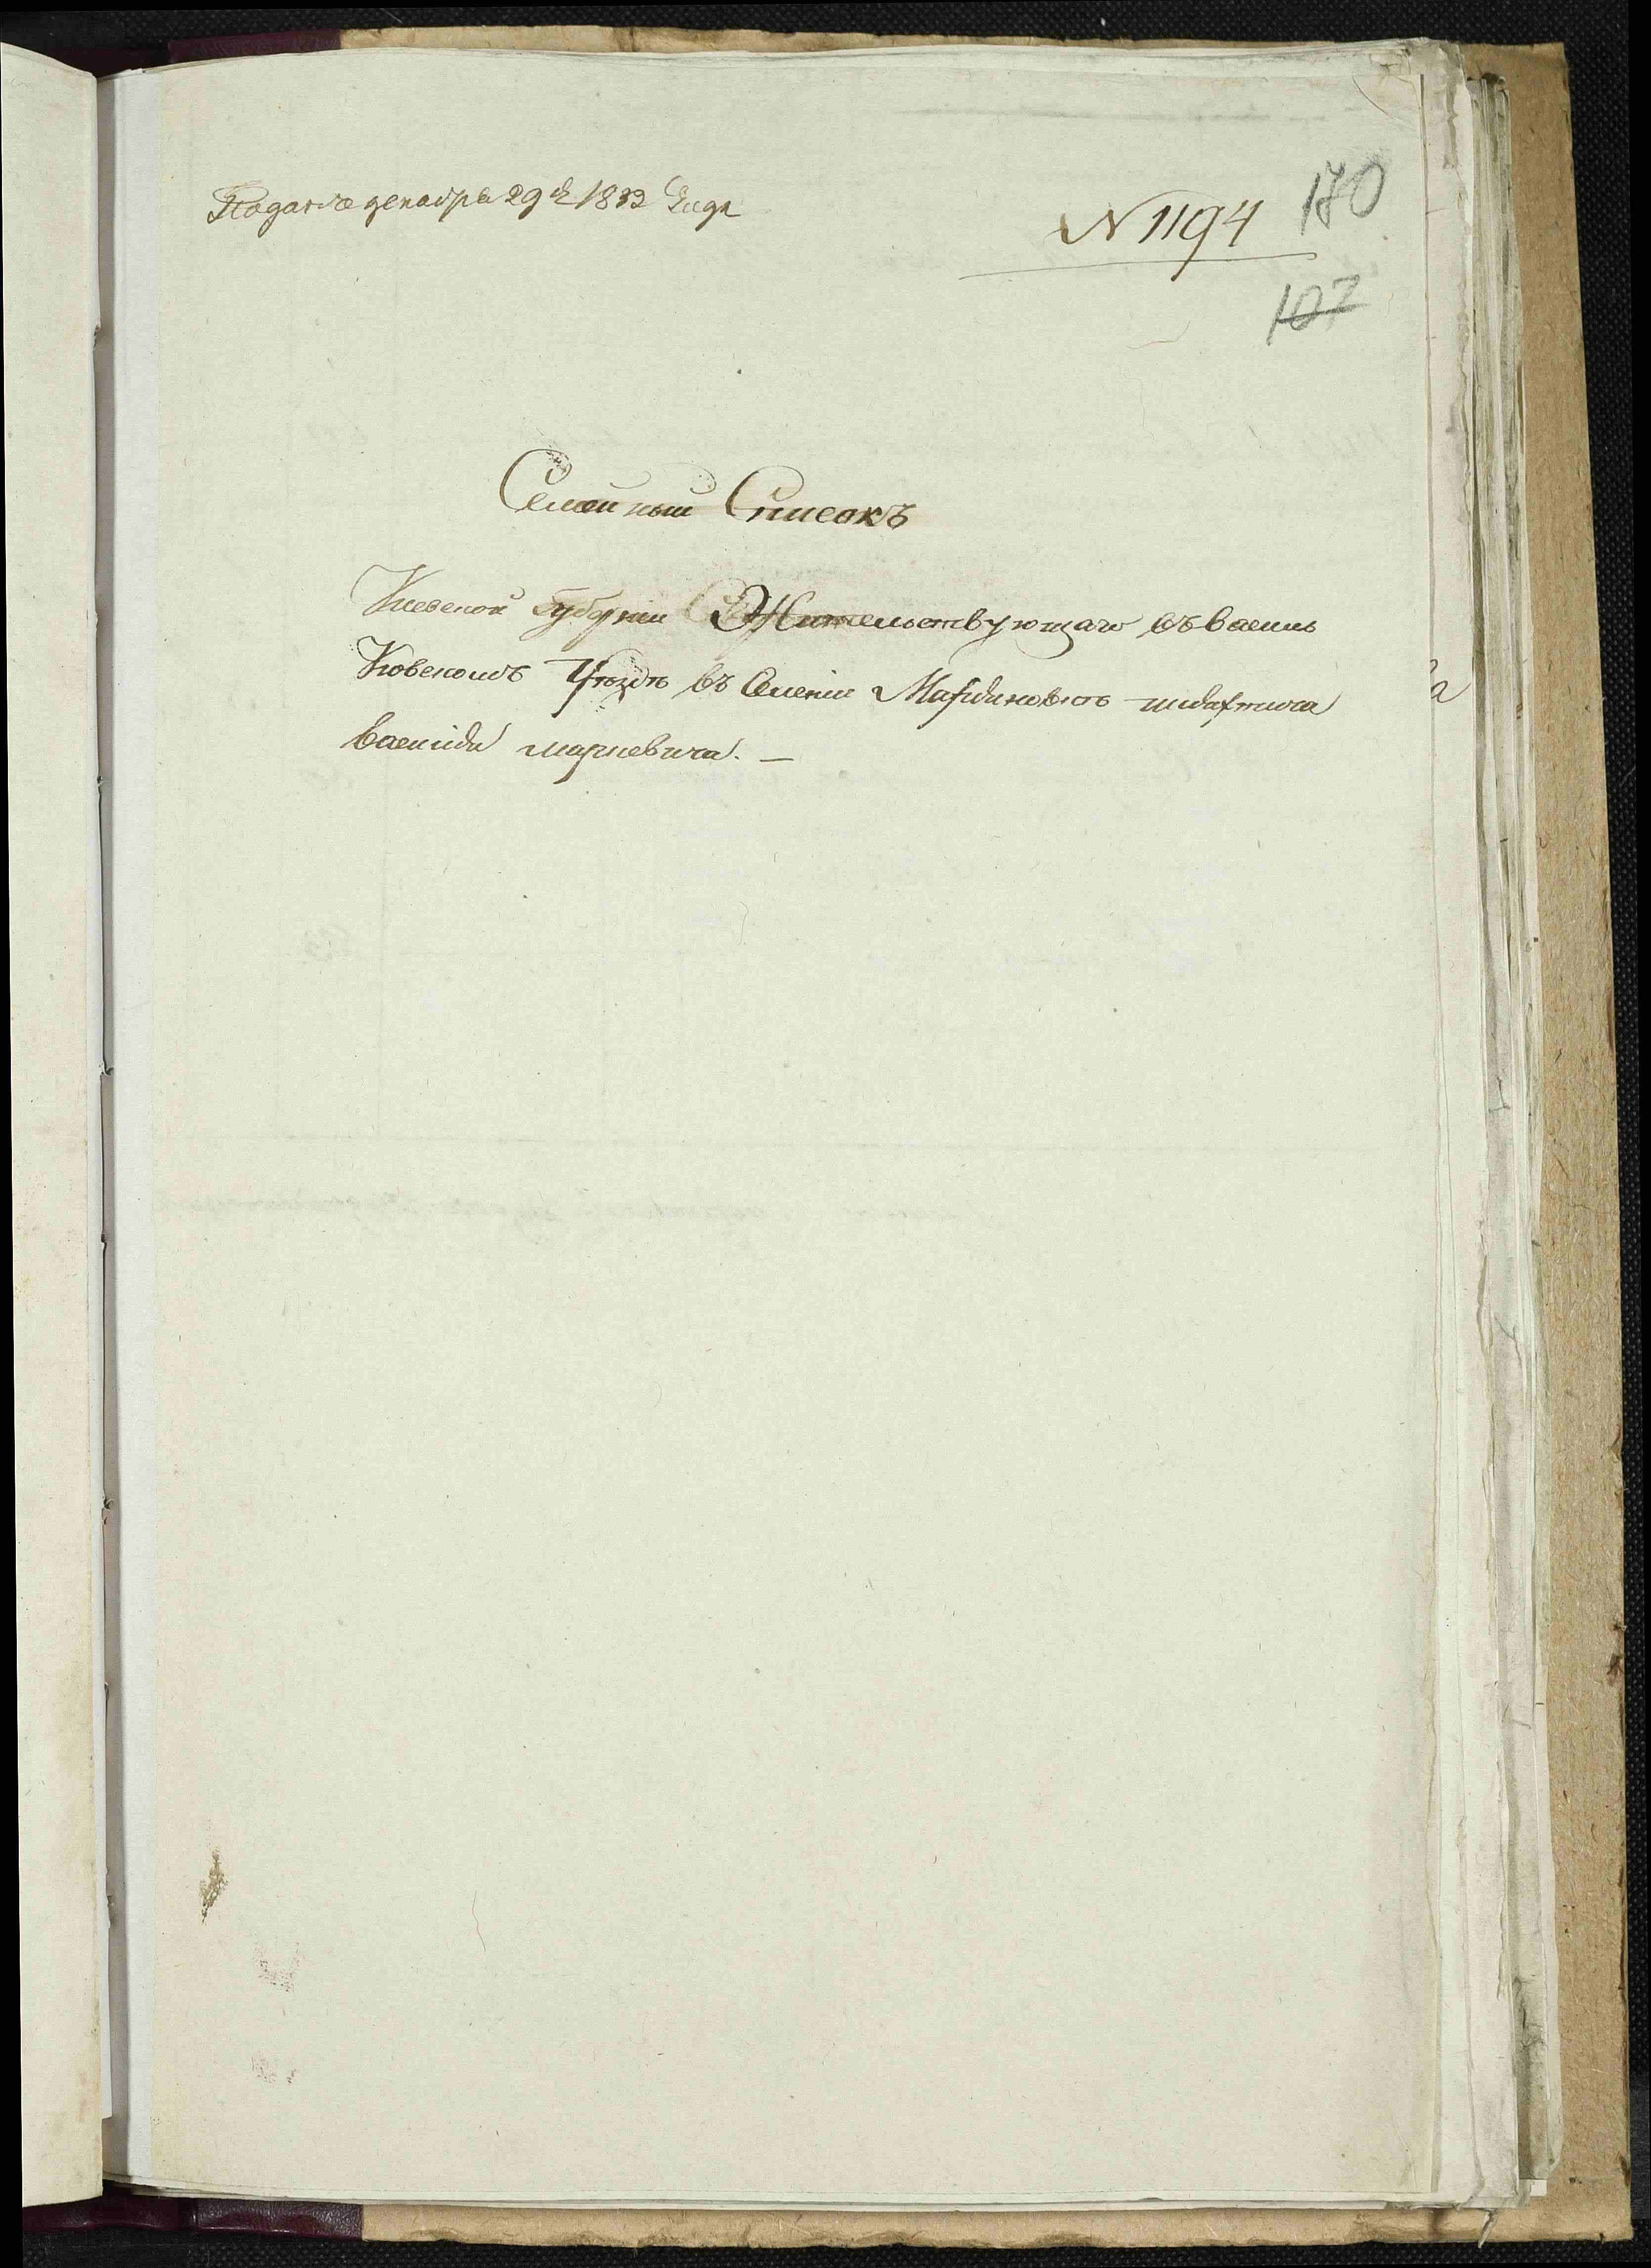 Подано декабря 29 д. 1832 Года
N 1194
170
107
Семейный Списокъ
Киевской губернии Жительствующаго въ Василь
Ковскомъ Уезде въ Селении Марьяновке шляхтича
Василия Маркевича. —